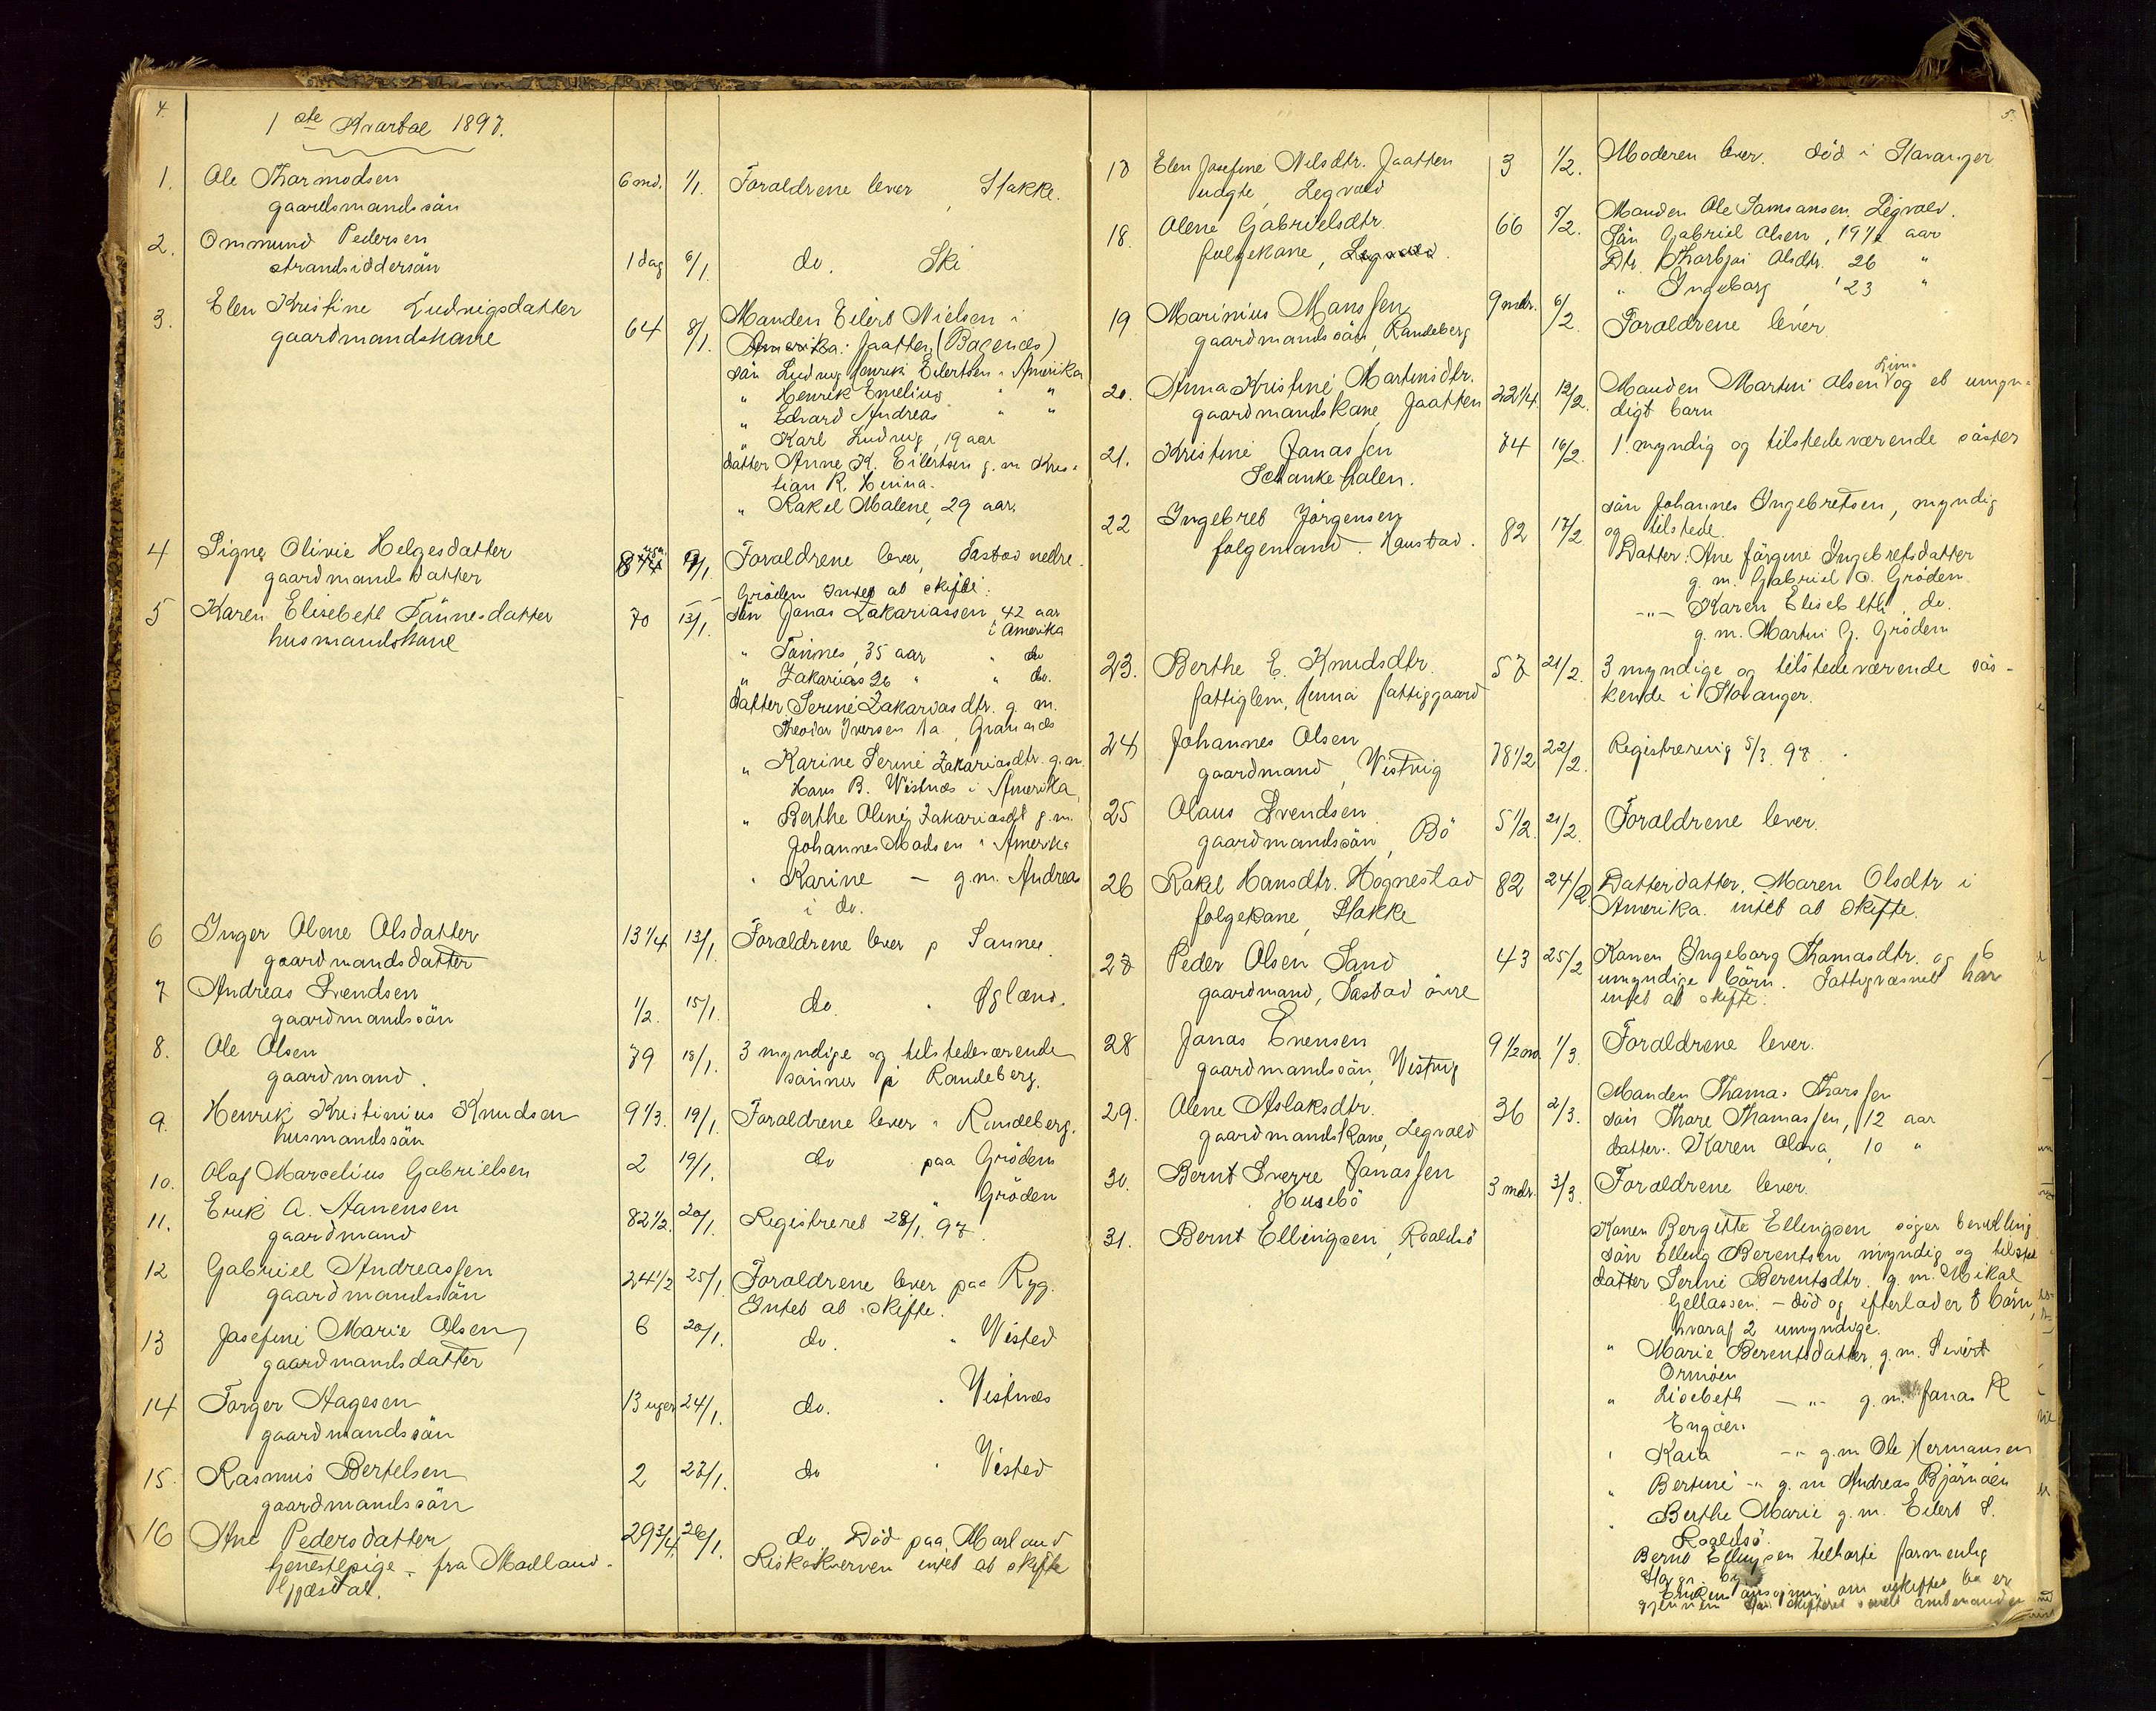 4.
1ste Kvartal 1897.
1. Ole Thormodsen 6 md. 1/1. Foraldrene lever, Stakke.
gaardsmandssön
2. Ommund Pedersen 1 dag 6/1. do. Ski
strandsiddersön
3. Elen Kristine Ludvigsdatter 64 8/1. Manden Eilert Nielsen i
gaardmandskone Amerika. Jaatten (Bagenes)
sön Ludvig Henrik Eilertsen i Amerika
" Henrik Emelius " "
" Edvard Andreas " "
" Karl Ludvig, 19 aar
datter Anne K. Eilertsen g. m. Kris-
tian R. Henna.
" Rakel Malene, 29 aar.
4 Signe Olivie Helgesdatter 9/1. Foraldrene lever, Tastad nedre.
gaardmandsdatter
Gröden Intet at skifte.
5 Karen Elisebeth Tönnesdatter 70 13/1. sön Jonas Zakariassen, 42 aar
husmandskone i Amerika
" Tönnes, 35 aar " do
" Zakarias 26 " " do.
datter Serine Zakariasdtr. g. m.
Theodor Iversen
" Karine Serine Zakariasdtr. g. m.
Hans B. Vistnæs i Amerika
" Berthe Oline Zakariasdt g. m.
Johannes Madsen i Amerika
" Karine — g. m. Andreas
i do.
6 Inger Olene Olsdatter 13 1/4 13/1. Foraldrene lever p Sunne.
gaardmandsdatter
7 Andreas Svendsen 1/2. 15/1. do. " Øgland.
gaardmandssön
8. Ole Olsen 79 18/1. 3 myndige og tilstedeværende
gaardmand. sönner på Randeberg.
9. Henrik Kristinius Knudsen 9 1/3. 19/1. Foraldrene lever i Randeberg.
husmandssön
10. Olaf Marcelius Gabrielsen 2 19/1. do paa Grödem
11. Erik A. Aanensen 82 1/2. 20/1. Registreret 28/1. 97. " Gröden
gaardmand
12 Gabriel Andreassen 24 1/2 25/1. Foraldrene lever paa Ryg.
gaardmandssön Intet at skifte.
13 Josefine Marie Olsen 6 20/1. do. " Visted
gaardmandsdatter
14 Torger Aagesen 13 uger 24/1. do. " Vistnæs
gaardmandssön
15. Rasmus Bertelsen 2 27/1. do " Visted
gaardmandssön
16 Ane Pedersdatter 29 3/4. 26/1. do. Död paa Marland
tjenestepige - fra Madland Riskekverven intet at skifte
Gjæsdal.
5.
17 Elen Josefine Nilsdtr. Jaatten 3 1/2. Moderen lever. död i Stavanger
uægte, Legvold
18. Olene Gabrielsdtr. 66 5/2. Manden Ole Samsonsen. Legvold.
folgekone, Legvold. Sön Gabriel Olsen, 19 1/2 aar
Dtr. Thorbjør Olsdtr. 26 "
" Ingeborg, 23 "
19 Marinius Monssen 9 mdr. 6/2. Foraldrene lever.
gaardmandssön, Randeberg
20. Anna Kristine Martinsdtr. 22 1/4. 12/2. Manden Martin Olsen og et umyn-
gaardmandskone, Jaatten digt barn
21. Kristine Jonassen 74 16/2. 1 myndig og tilstedeværende söster
Schankeholen.
22 Ingebret Jörgensen 82 17/2. sön Johannes Ingebretsen, myndig
folgemand. Haustad. og tilstede.
Datter: Ane Jörgine Ingebretsdatter
g. m. Gabriel O. Grödem.
—"— Karen Elisebeth do.
g. m. Martin G. Grödem
23. Berthe E. Knudsdtr. 57 21/2. 3 myndige og tilstedeværende sös-
fattiglem, Henna fattiggaard kende i Stavanger.
24 Johannes Olsen 78 1/2 22/2. Registrering 5/3. 97.
gaardmand, Vistvig
25 Olaus Svendsen 5 1/2. 21/2. Foraldrene lever.
gaardmandssön, Bö
26 Rakel Hansdtr. Hognestad 82 24/2 Datterdatter, Maren Olsdtr i
folgekone, Stakke Amerika. intet at skifte.
27 Peder Olsen Sand 43 25/2 Konen Ingeborg Thomasdtr. og 6
gaardmand, Tastad övre umyndige börn. Fattigvæsnet har
intet at skifte.
28 Jonas Evensen 9 1/2 m. 1/3. Foraldrene lever.
gaardmandssön, Vistvig
29. Olene Aslaksdtr. 36 2/3. Manden Thomas Thorssen
gaardmandskone, Legvold sön Thore Thomassen, 12 aar
datter. Karen Olava, 10 "
30. Bernt Sverre Jonassen 3 mdr. 3/3. Foraldrene lever.
Husebö
31. Bernt Ellingsen, Roaldsö Konen Bergitte Ellingsen söger bevilling
sön Elling Berentsen myndig og tilsted
datter Serine Berentsdtr. g. m. Mikal
Gellassen. - död og efterlader 8 börn,
hvoraf 2 umyndige.
" Marie Berentsdatter, g. m. Sivert
Ormöen
" Lisebeth —"— g. m. Jonas
Engöen
" Kaia —"— g. m Ole Hermansen
" Bertine —"— g. m Andreas Bjørnöen
" Berthe Marie g. m. Eilert S.
Roaldsö.
Bernt Ellingsen